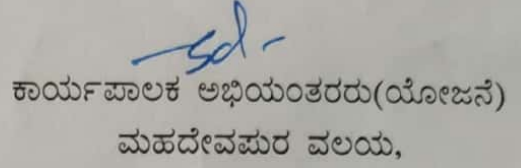 sd-
ಕಾರ್ಯಪಾಲಕ ಅಭಿಯಂತರರು(ಯೋಜನೆ)
ಮಹದೇವಪುರ ವಲಯ,